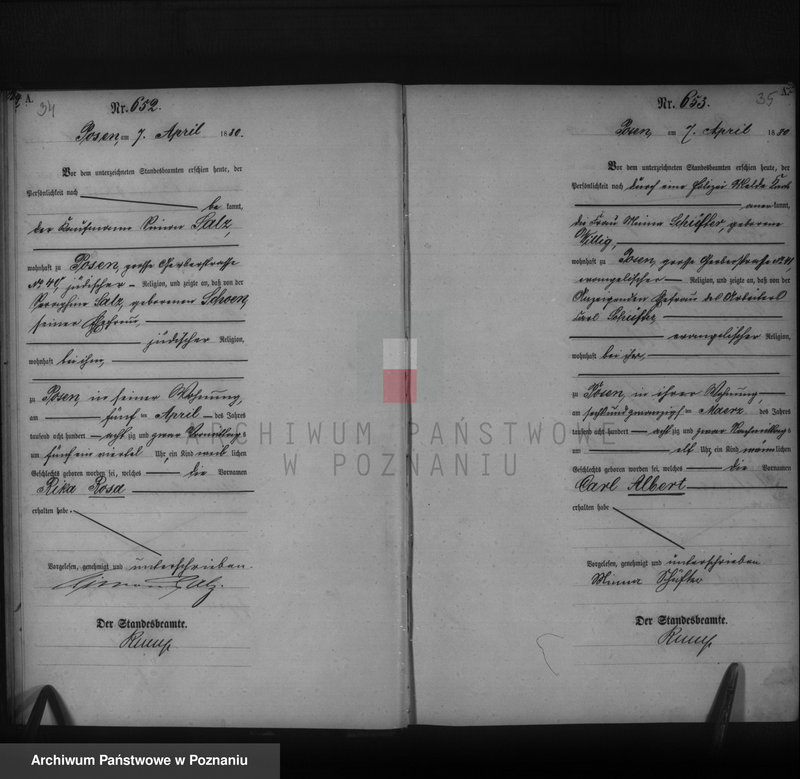 A.
34
Nr. 652.
Posen, am 7. April 1880.
Vor dem unterzeichneten Standesbeamten erschien heute, der
Persönlichkeit nach
be kannt,
der Kaufmann Simon Salz,
wohnhaft zu Posen, grosse Gerberstrasse
No 40, jüdischer Religion, und zeigte an, daß von der
Salz, geborenen Schoen,
seiner Ehefrau,
jüdischer Religion,
wohnhaft bei ihm,
zu Posen, in seiner Wohnung,
am fünf ten April des Jahres
tausend acht hundert acht zig und zwar Vormittags
um fünf ein viertel Uhr, ein Kind weib lichen
Geschlechts geboren worden sei, welches die Vornamen
Rika Rosa
erhalten habe.
Vorgelesen, genehmigt und unterschrieben.
Simon Salz.
Der Standesbeamte.
A.
35
Nr. 653.
Posen, am 7. April 1880
Vor dem unterzeichneten Standesbeamten erschien heute, der
Persönlichkeit nach durch eine Polizei Melde Karte
aner kannt,
die Frau Minna Schüfter, geborene
Willig,
wohnhaft zu Posen, grosse Gerberstrasse No 41,
evangelischer Religion, und zeigte an, daß von der
Anzeigenden Ehefrau des Arbeiters
Carl Schüfter,
evangelischer Religion,
wohnhaft bei ihr,
zu Posen, in ihrer Wohnung
am sechsundzwanzigs ten Maerz des Jahres
tausend acht hundert acht zig und zwar Nachmittags
um elf Uhr, ein Kind männ lichen
Geschlechts geboren worden sei, welches die Vornamen
Carl Albert
erhalten habe
Vorgelesen, genehmigt und unterschrieben
Minna Schüfter
Der Standesbeamte.
ARCHIWUM PAŃSTWOWE
W POZNANIU
Archiwum Państwowe w Poznaniu